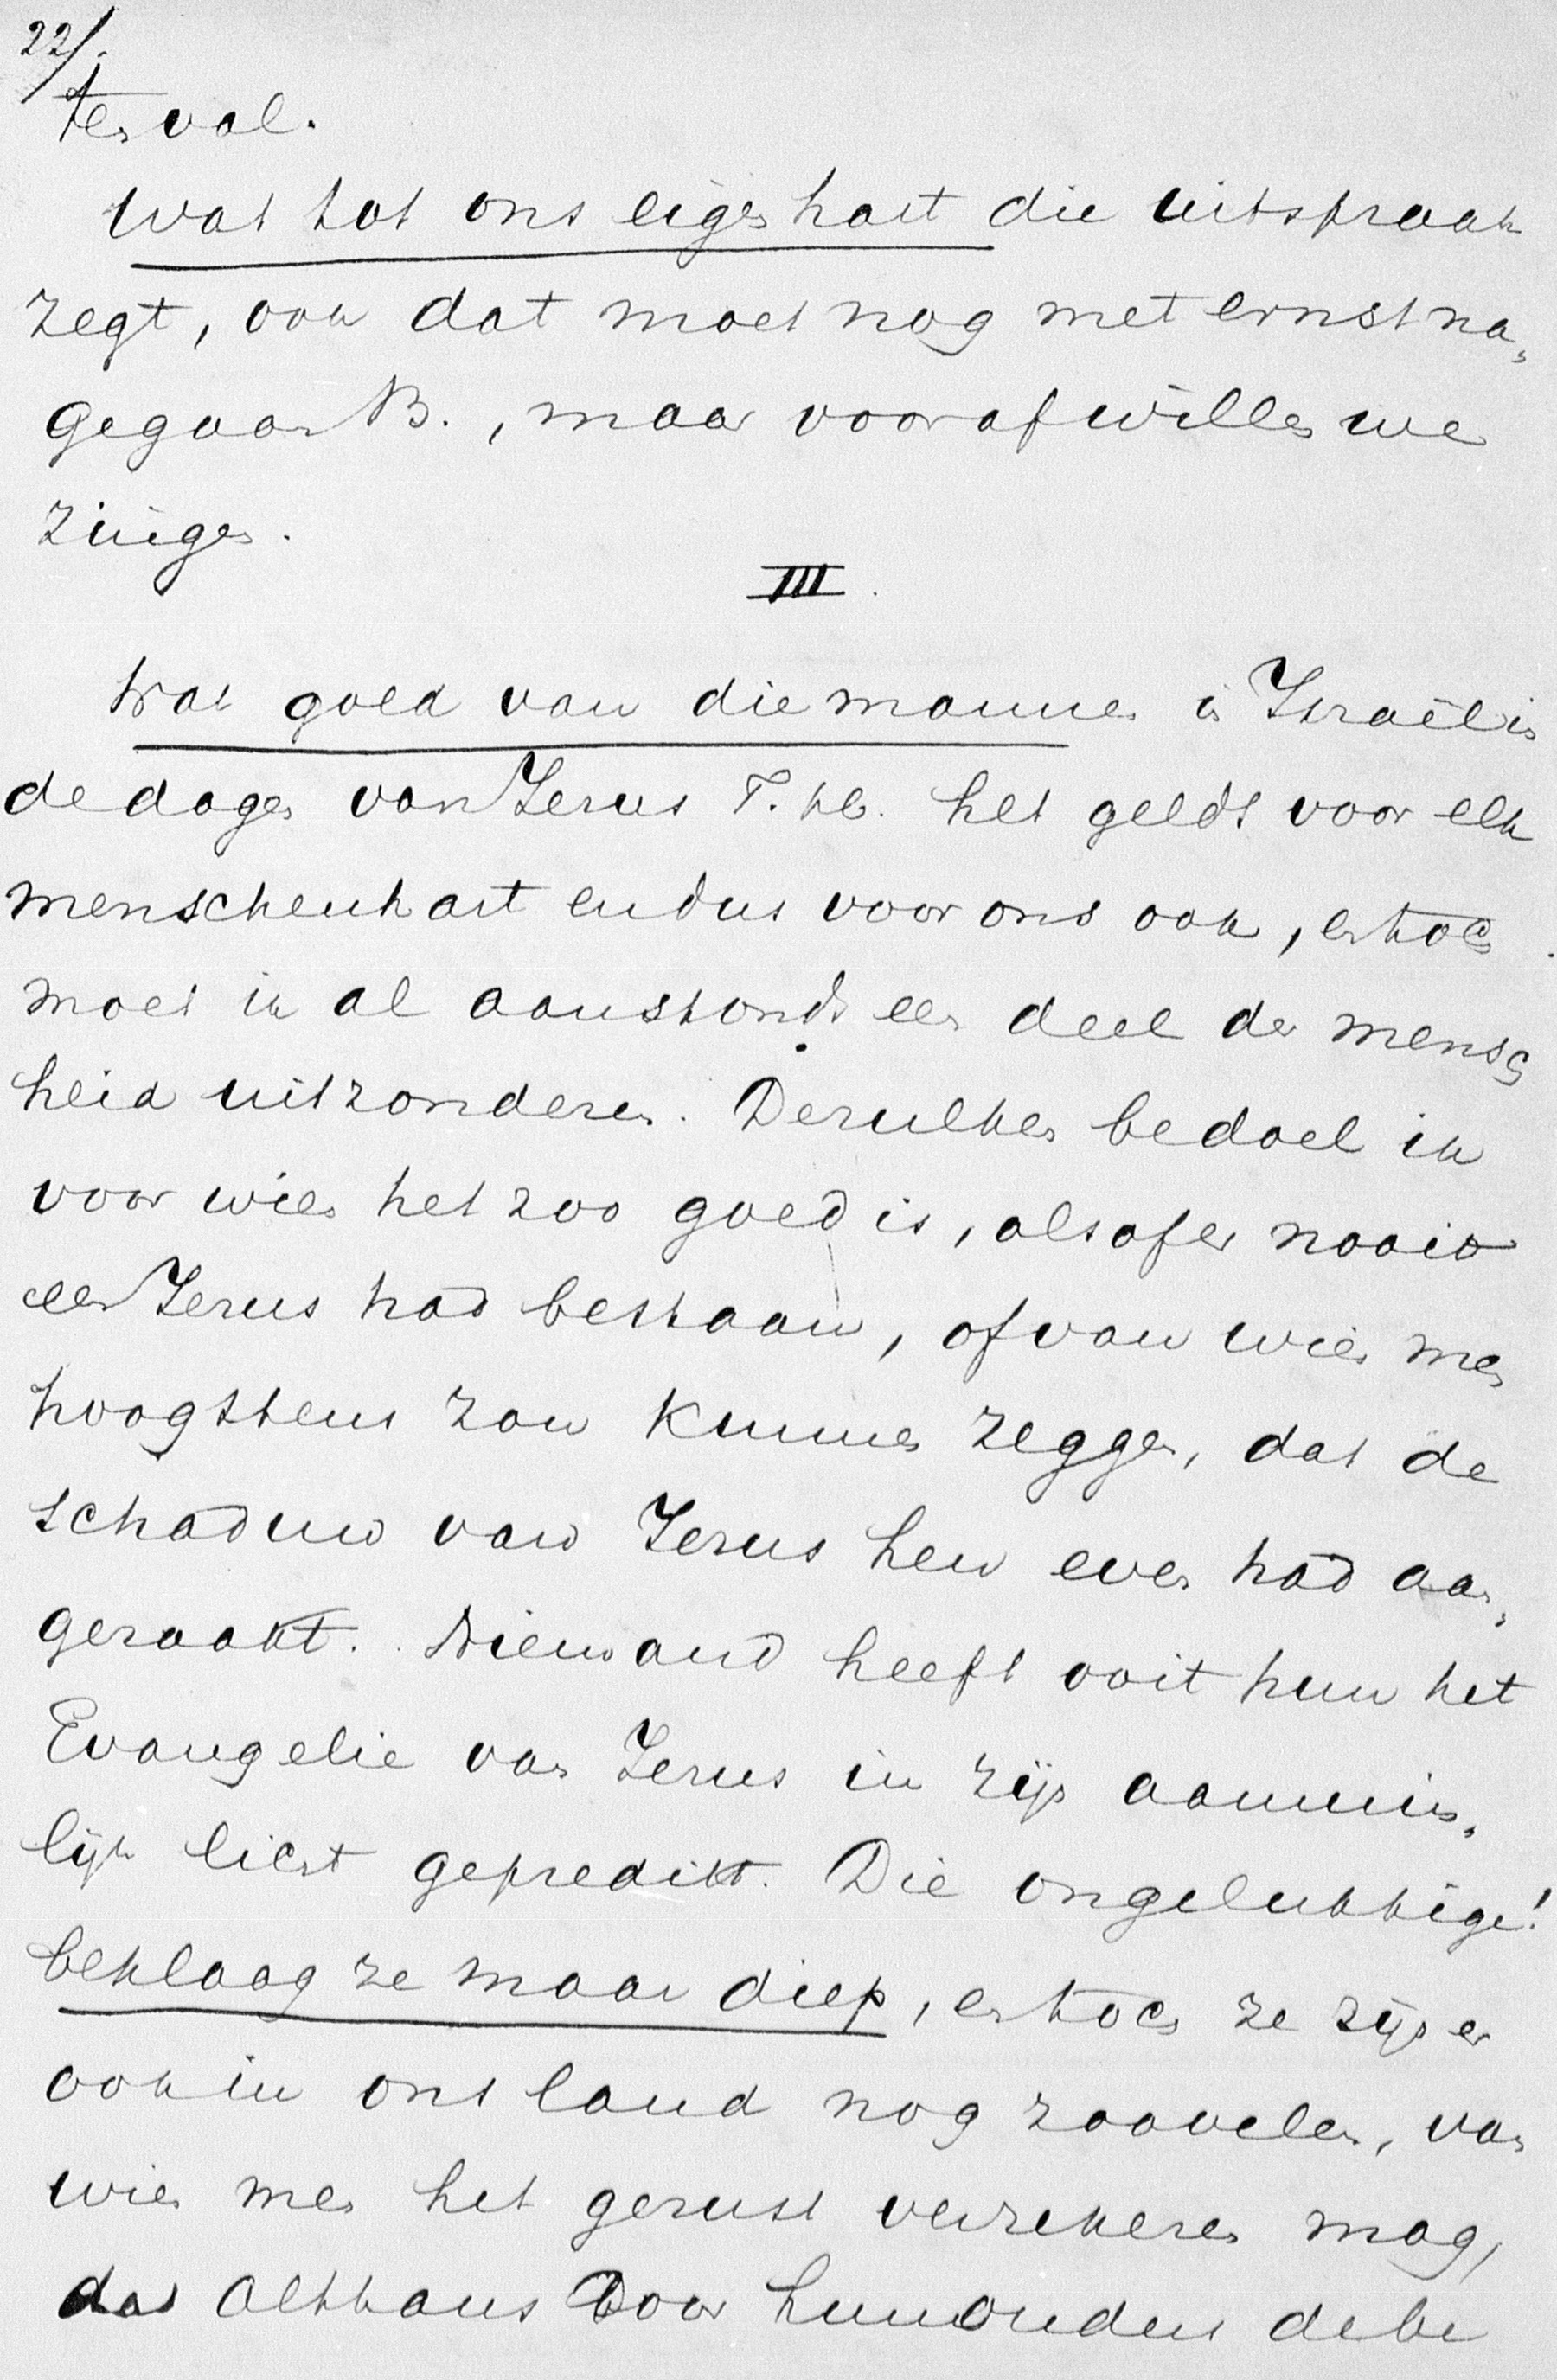 22/.
ten val.
Wat tot ons eigen hart die uitspraak
zegt, ook dat moet nog met ernst na-
gegaan B., maar vooraf willen we
zingen.
III.
Wat goed van die mannen in Israël in
de dagen van Jezus T. h. het geldt voor elk
menschenhart en dus voor ons ook, en toch
moet ik al aanstonds een deel der mensch
heid uitzonderen. Dezulken bedoel ik
voor wien het zoo goed is, alsof er nooit
een Jezus had bestaan, of van wien men
hoogstens zou kunnen zeggen, dat de
schaduw van Jezus hen even had aan-
geraakt. Niemand heeft ooit hun het
Evangelie van Jezus in zijn aanmin-
lijk licht gepredikt. Die ongelukkigen!
beklaag ze maar diep, en toch ze zijn er
ook in ons land nog zoovelen, van
wien men het gerust verzekeren mag,
dat althans door hun ouders de be